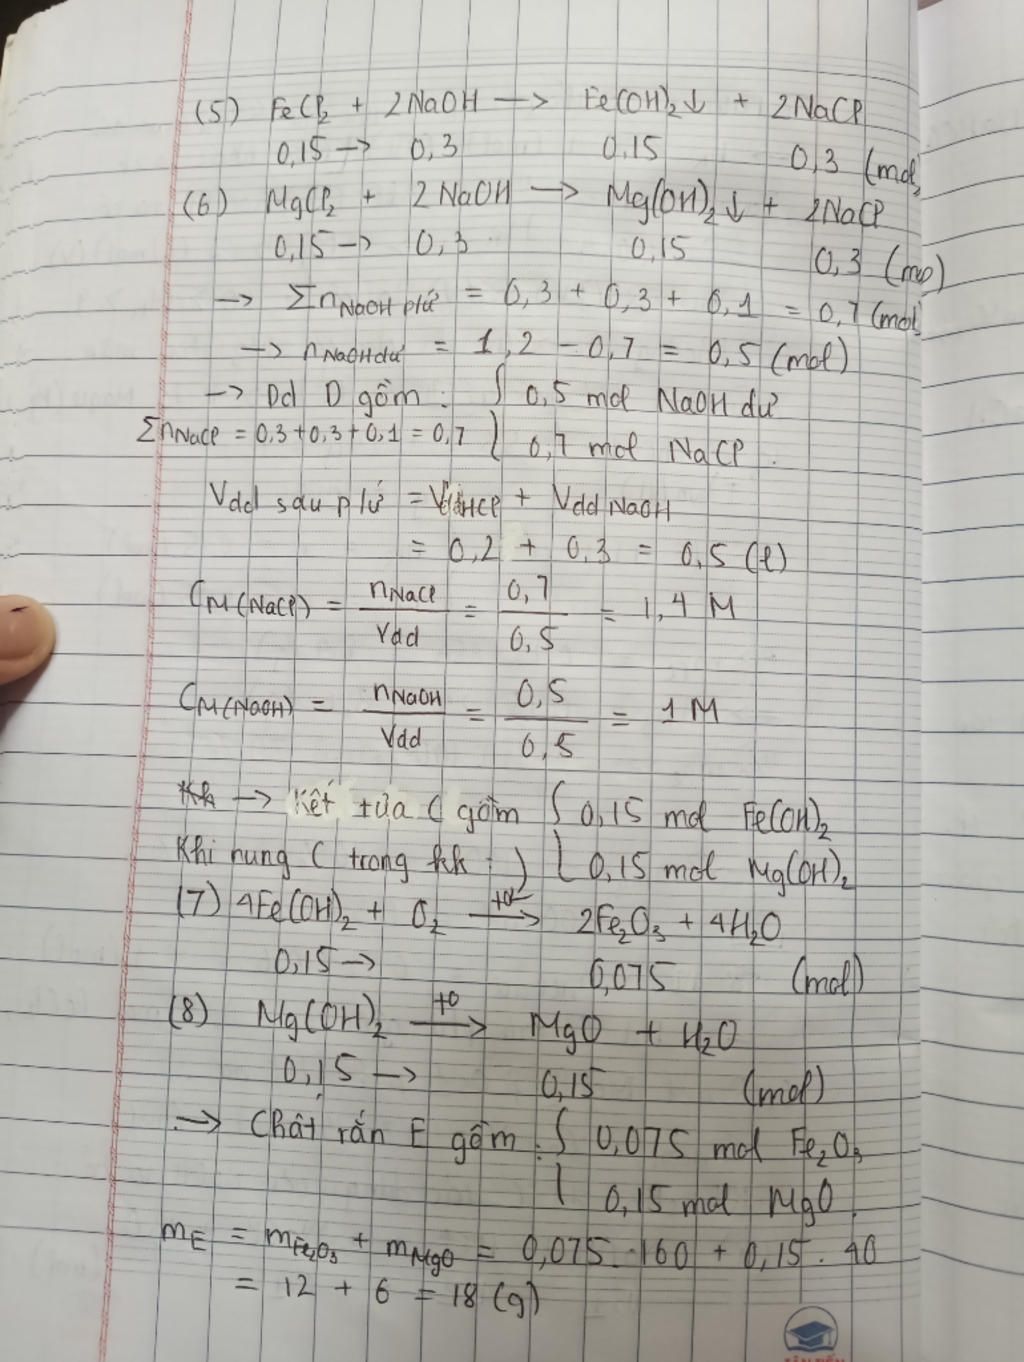 (5) FeCl₂ + 2NaOH → Fe(OH)₂↓ + 2NaCl
0,15 → 0,3 0,15 0,3 (mol)
(6) MgCl₂ + 2NaOH → Mg(OH)₂↓ + 2NaCl
0,15 → 0,3 0,15 0,3 (mol)
→ Σn NaOH pứ = 0,3 + 0,3 + 0,1 = 0,7 (mol)
→ n NaOH dư = 1,2 - 0,7 = 0,5 (mol)
→ Dd D gồm : { 0,5 mol NaOH dư
Σn NaCl = 0,3 + 0,3 + 0,1 = 0,7 } 0,7 mol NaCl.
Vdd sau pứ = Vdd HCl + Vdd NaOH
= 0,2 + 0,3 = 0,5 (l)
CM(NaCl) = nNaCl / Vdd = 0,7 / 0,5 = 1,4 M
CM(NaOH) = nNaOH / Vdd = 0,5 / 0,5 = 1M
→ Kết tủa C gồm { 0,15 mol Fe(OH)₂
Khi nung C trong kk : { 0,15 mol Mg(OH)₂
(7) 4Fe(OH)₂ + O₂ →(t°) 2Fe₂O₃ + 4H₂O
0,15 → 0,075 (mol)
(8) Mg(OH)₂ →(t°) MgO + H₂O
0,15 → 0,15 (mol)
→ Chất rắn E gồm : { 0,075 mol Fe₂O₃
0,15 mol MgO.
mE = mFe₂O₃ + mMgO = 0,075 . 160 + 0,15 . 40
= 12 + 6 = 18 (g)